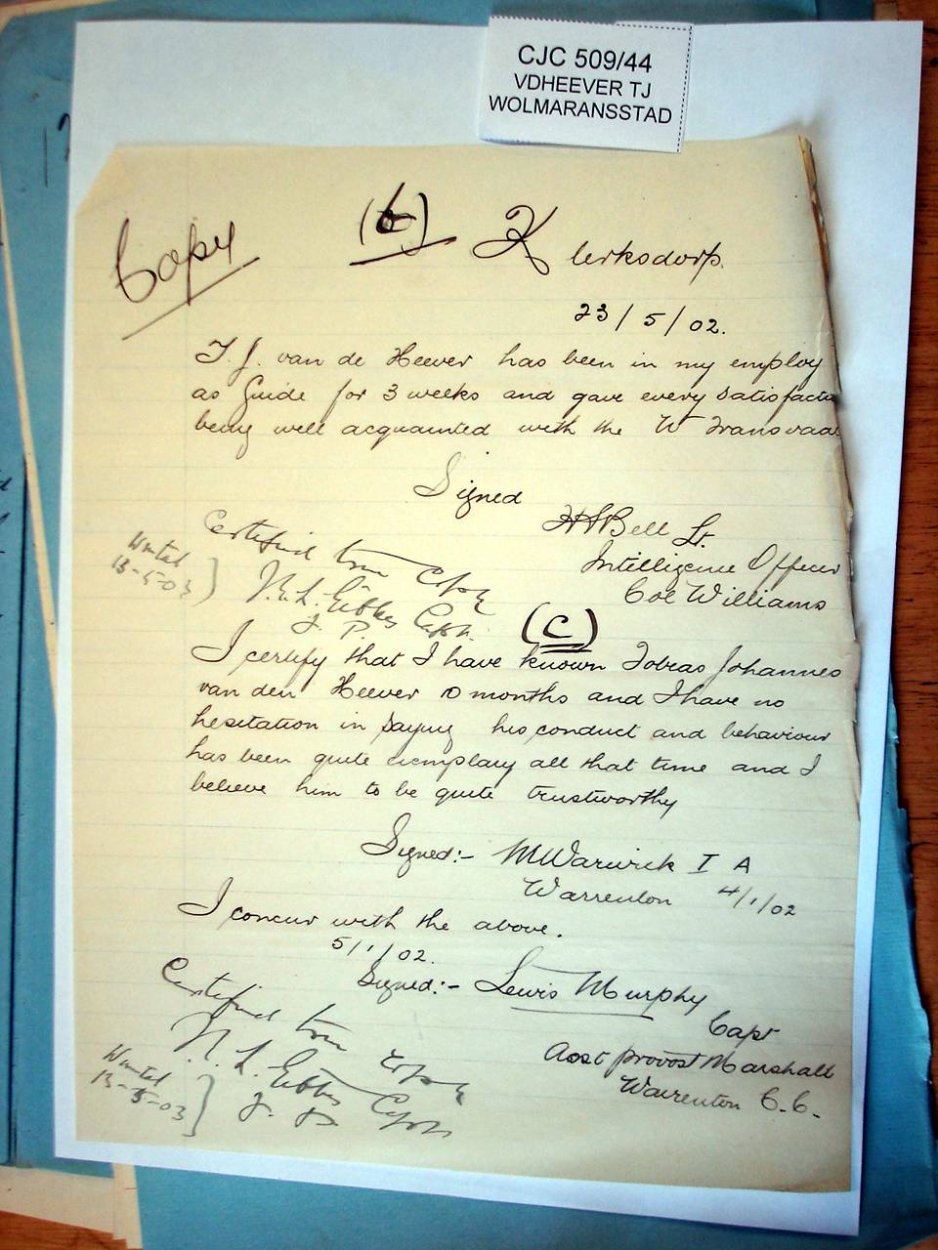 CJC 509/44
VDHEEVER TJ
WOLMARANSSTAD
Copy
(b) Klerksdorp.
23/5/02.
T. J. van de Heever has been in my employ
as Guide for 3 weeks and gave every satisfactio
being well acquainted with the W Transvaal
Signed
H S Bell Lt.
Intelligence Officer
Col Williams
Certified true Copy
N. L. Gibbs Capt.
J. P.
13-5-03
(C)
I certify that I have known Tobias Johannes
van den Heever 10 months and I have no
hesitation in saying his conduct and behaviour
has been quite exemplary all that time and I
believe him to be quite trustworthy
Signed:- M Warwick I A
Warrenton 4/1/02
I concur with the above.
5/1/02.
Signed:- Lewis Murphy
Capt
Asst Provost Marshall
Warrenton C.C.
Certified true Copy
N. L. Gibbs Capt
J. P.
13-5-03